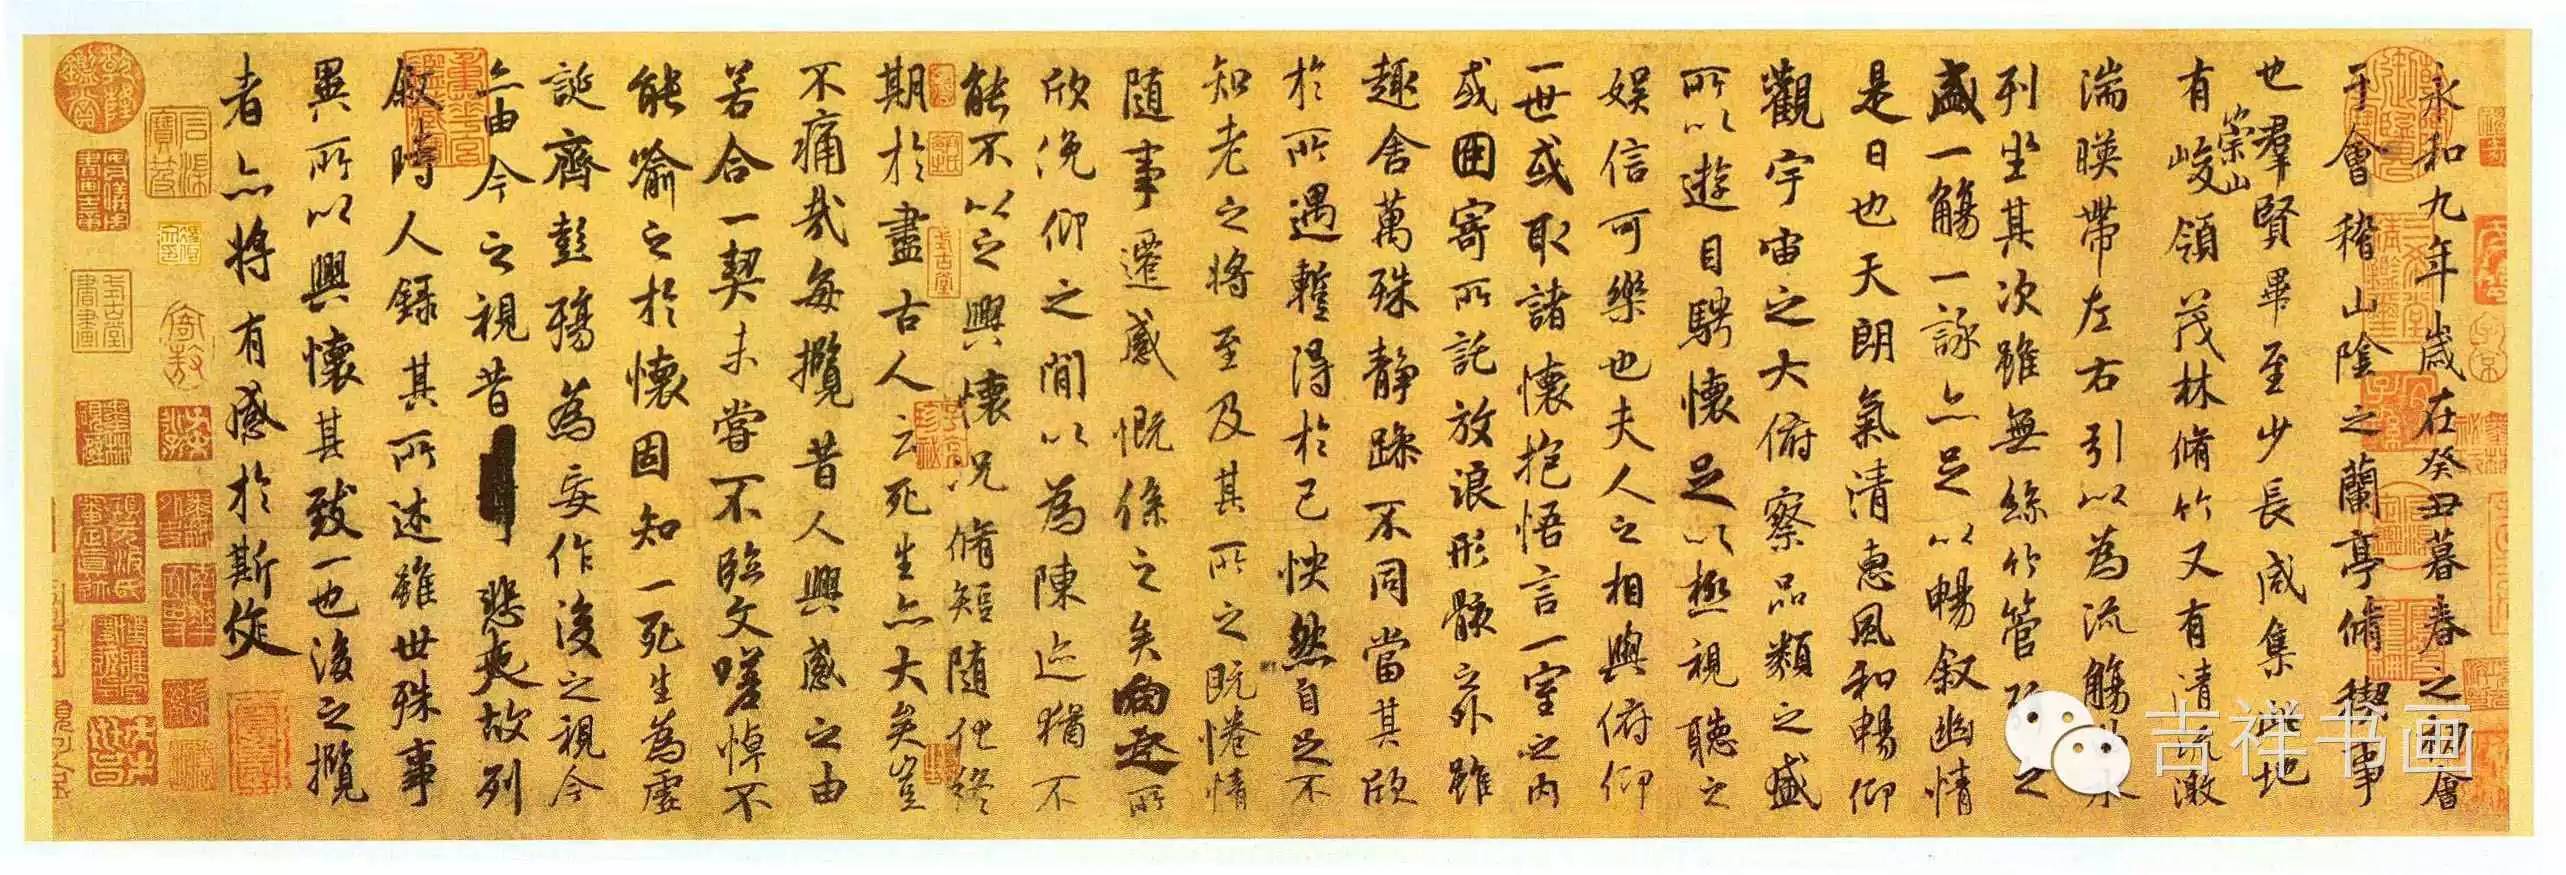 永和九年歲在癸丑暮春之初會
于會稽山陰之蘭亭脩稧事
也羣賢畢至少長咸集此地
有崇山峻領茂林脩竹又有清流激
湍暎帶左右引以為流觴曲水
列坐其次雖無絲竹管弦之
盛一觴一詠亦足以暢叙幽情
是日也天朗氣清惠風和暢仰
觀宇宙之大俯察品類之盛
所以遊目騁懷足以極視聽之
娛信可樂也夫人之相與俯仰
一世或取諸懷抱悟言一室之內
或因寄所託放浪形骸之外雖
趣舍萬殊靜躁不同當其欣
於所遇蹔得於己怏然自足不
知老之將至及其所之既惓情
隨事遷感慨係之矣向之所
欣俛仰之間以為陳迹猶不
能不以之興懷況脩短隨化終
期於盡古人云死生亦大矣豈
不痛哉每攬昔人興感之由
若合一契未嘗不臨文嗟悼不
能喻之於懷固知一死生為虛
誕齊彭殤為妄作後之視今
亦由今之視昔悲夫故列
叙時人錄其所述雖世殊事
異所以興懷其致一也後之攬
者亦將有感於斯文
吉祥书画